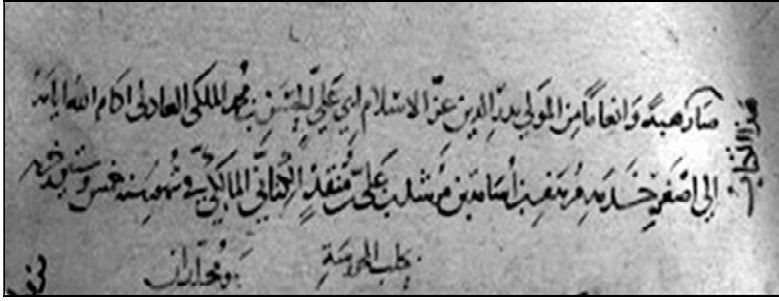 صار هبة وانعاما من المولى بدر الدين عز الاسلام ابي علي الحسن بن محمد الملكي العادلي ادام الله ايامه
الى اصغر خدمه مرهف بن أسامة بن مرشد بن علي بن منقذ الكناني المالكي في شهور سنة خمس وستين
بحلب المحروسة